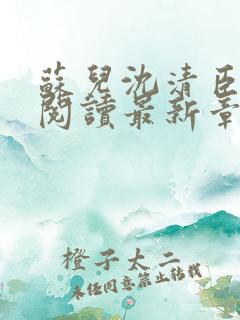 蘇兒沈清臣
閱讀最新章
橙子太二
未經同意禁止轉載